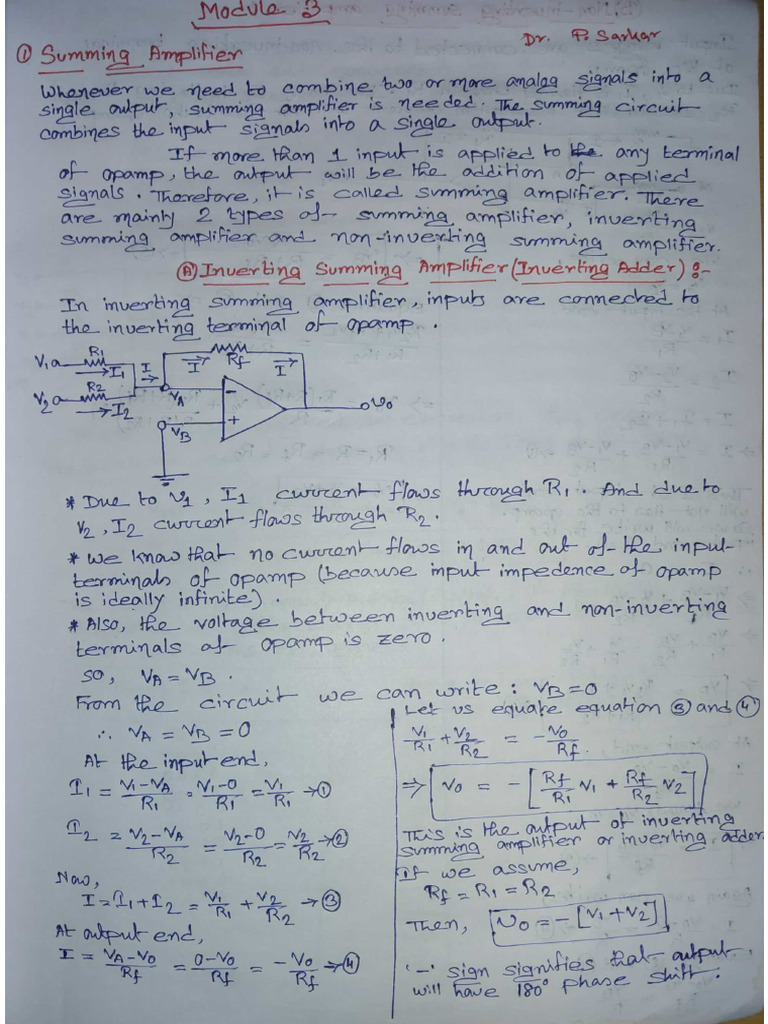 Module 3
Dr. P. Sarkar
① Summing Amplifier
Whenever we need to combine two or more analog signals into a
single output, summing amplifier is needed. The summing circuit
combines the input signals into a single output.
If more than 1 input is applied to any terminal
of opamp, the output will be the addition of applied
signals. Therefore, it is called summing amplifier. There
are mainly 2 types of summing amplifier, inverting
summing amplifier and non-inverting summing amplifier.
Ⓐ Inverting Summing Amplifier (Inverting Adder) :-
In inverting summing amplifier, inputs are connected to
the inverting terminal of opamp.
V1 R1 I1 I VA I Rf I
V2 R2 I2
- + VB Vo
* Due to V1, I1 current flows through R1. And due to
V2, I2 current flows through R2.
* We know that no current flows in and out of the input
terminals of opamp (because input impedence of opamp
is ideally infinite).
* Also, the voltage between inverting and non-inverting
terminals of opamp is zero.
So, VA = VB.
From the circuit we can write : VB = 0
∴ VA = VB = 0
At the input end,
I1 = (V1-VA)/R1 = (V1-0)/R1 = V1/R1 → ①
I2 = (V2-VA)/R2 = (V2-0)/R2 = V2/R2 → ②
Now,
I = I1 + I2 = V1/R1 + V2/R2 → ③
At output end,
I = (VA-Vo)/Rf = (0-Vo)/Rf = -Vo/Rf → ④
Let us equate equation ③ and ④
V1/R1 + V2/R2 = -Vo/Rf.
⇒ Vo = -[Rf/R1 V1 + Rf/R2 V2]
This is the output of inverting
summing amplifier or inverting adder.
If we assume,
Rf = R1 = R2
Then, Vo = -[V1+V2]
'-' sign signifies that output
will have 180° phase shift.